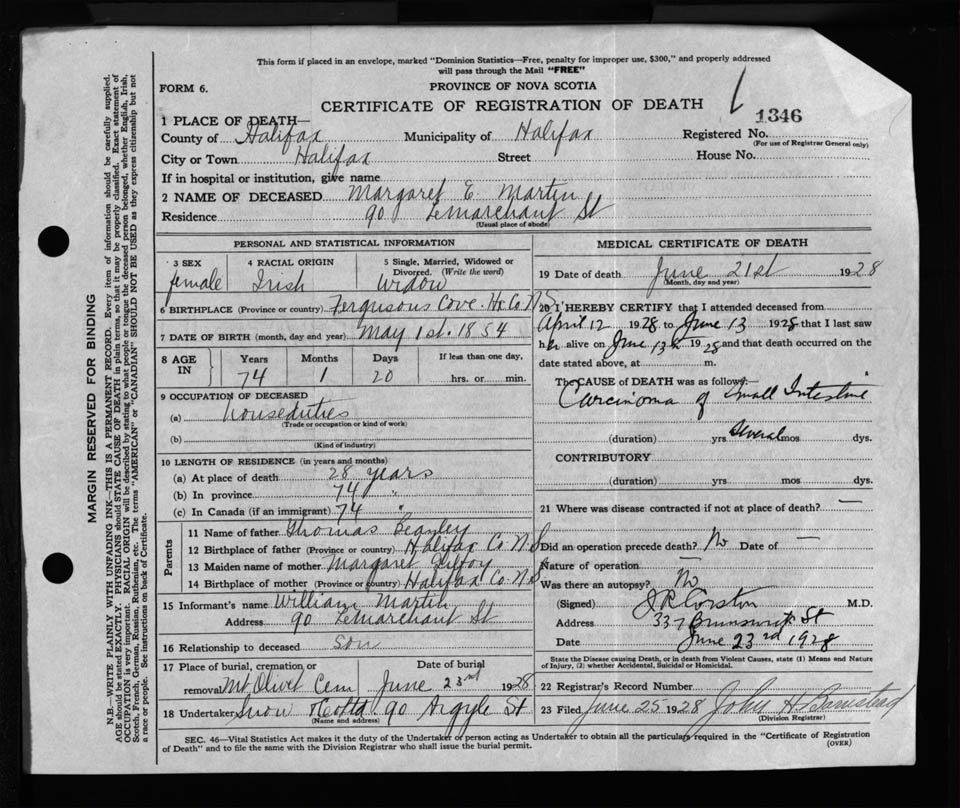 This form if placed in an envelope, marked "Dominion Statistics—Free, penalty for improper use, $300," and properly addressed
will pass through the Mail "FREE"
FORM 6.
PROVINCE OF NOVA SCOTIA
CERTIFICATE OF REGISTRATION OF DEATH
1346
1 PLACE OF DEATH—
County of Halifax Municipality of Halifax Registered No.
(For use of Registrar General only)
City or Town Halifax Street House No.
If in hospital or institution, give name
2 NAME OF DECEASED Margaret E. Martin
Residence 90 LeMarchant St
(Usual place of abode)
PERSONAL AND STATISTICAL INFORMATION
3 SEX 4 RACIAL ORIGIN 5 Single, Married, Widowed or
Divorced. (Write the word)
female Irish Widow
6 BIRTHPLACE (Province or country) Fergusons Cove Hx Co N.S.
7 DATE OF BIRTH (month, day and year) May 1st. 1854
8 AGE IN Years Months Days If less than one day,
74 1 20 hrs. or min.
9 OCCUPATION OF DECEASED
(a) Houseduties
(Trade or occupation or kind of work)
(b)
(Kind of industry)
10 LENGTH OF RESIDENCE (in years and months)
(a) At place of death 28 years
(b) In province 74 "
(c) In Canada (if an immigrant) 74 "
Parents
11 Name of father Thomas
12 Birthplace of father (Province or country) Halifax Co. N.S
13 Maiden name of mother Margaret
14 Birthplace of mother (Province or country) Halifax Co. N.S
15 Informant's name William Martin
Address 90 LeMarchant St
16 Relationship to deceased son
17 Place of burial, cremation or Date of burial
removal Mt Olivet Cem June 23rd 1928
18 Undertaker Snow & Co Ltd 90 Argyle St
(Name and address)
MEDICAL CERTIFICATE OF DEATH
19 Date of death June 21st 1928
(Month, day and year)
20 I HEREBY CERTIFY that I attended deceased from
April 12 1928 to June 13 1928 that I last saw
her alive on June 13th 1928 and that death occurred on the
date stated above, at m.
The CAUSE OF DEATH was as follows:—
Carcinoma of Small Intestine
(duration) yrs Several mos dys.
CONTRIBUTORY
(duration) yrs mos dys.
21 Where was disease contracted if not at place of death? —
Did an operation precede death? No Date of —
Nature of operation —
Was there an autopsy? No
(Signed) M.D.
Address 337 Brunswick St
Date June 23rd 1928
State the Disease causing Death, or in death from Violent Causes, state (1) Means and Nature
of Injury, (2) whether Accidental, Suicidal or Homicidal.
22 Registrar's Record Number
23 Filed June 25 1928 John H
(Division Registrar)
SEC. 46—Vital Statistics Act makes it the duty of the Undertaker or person acting as Undertaker to obtain all the particulars required in the "Certificate of Registration
of Death" and to file the same with the Division Registrar who shall issue the burial permit.
(OVER)
MARGIN RESERVED FOR BINDING
N.B.—WRITE PLAINLY WITH UNFADING INK—THIS IS A PERMANENT RECORD. Every item of information should be carefully supplied.
AGE should be stated EXACTLY. PHYSICIANS should STATE CAUSE OF DEATH in plain terms, so that it may be properly classified. Exact statement of
OCCUPATION is very important. RACIAL ORIGIN will be described by stating to what people or tongue the deceased person belonged, whether English, Irish,
Scotch, French, German, Russian, Ruthenian, etc. The terms "AMERICAN" or "CANADIAN" SHOULD NOT BE USED as they express citizenship but not
a race or people. See instructions on back of Certificate.